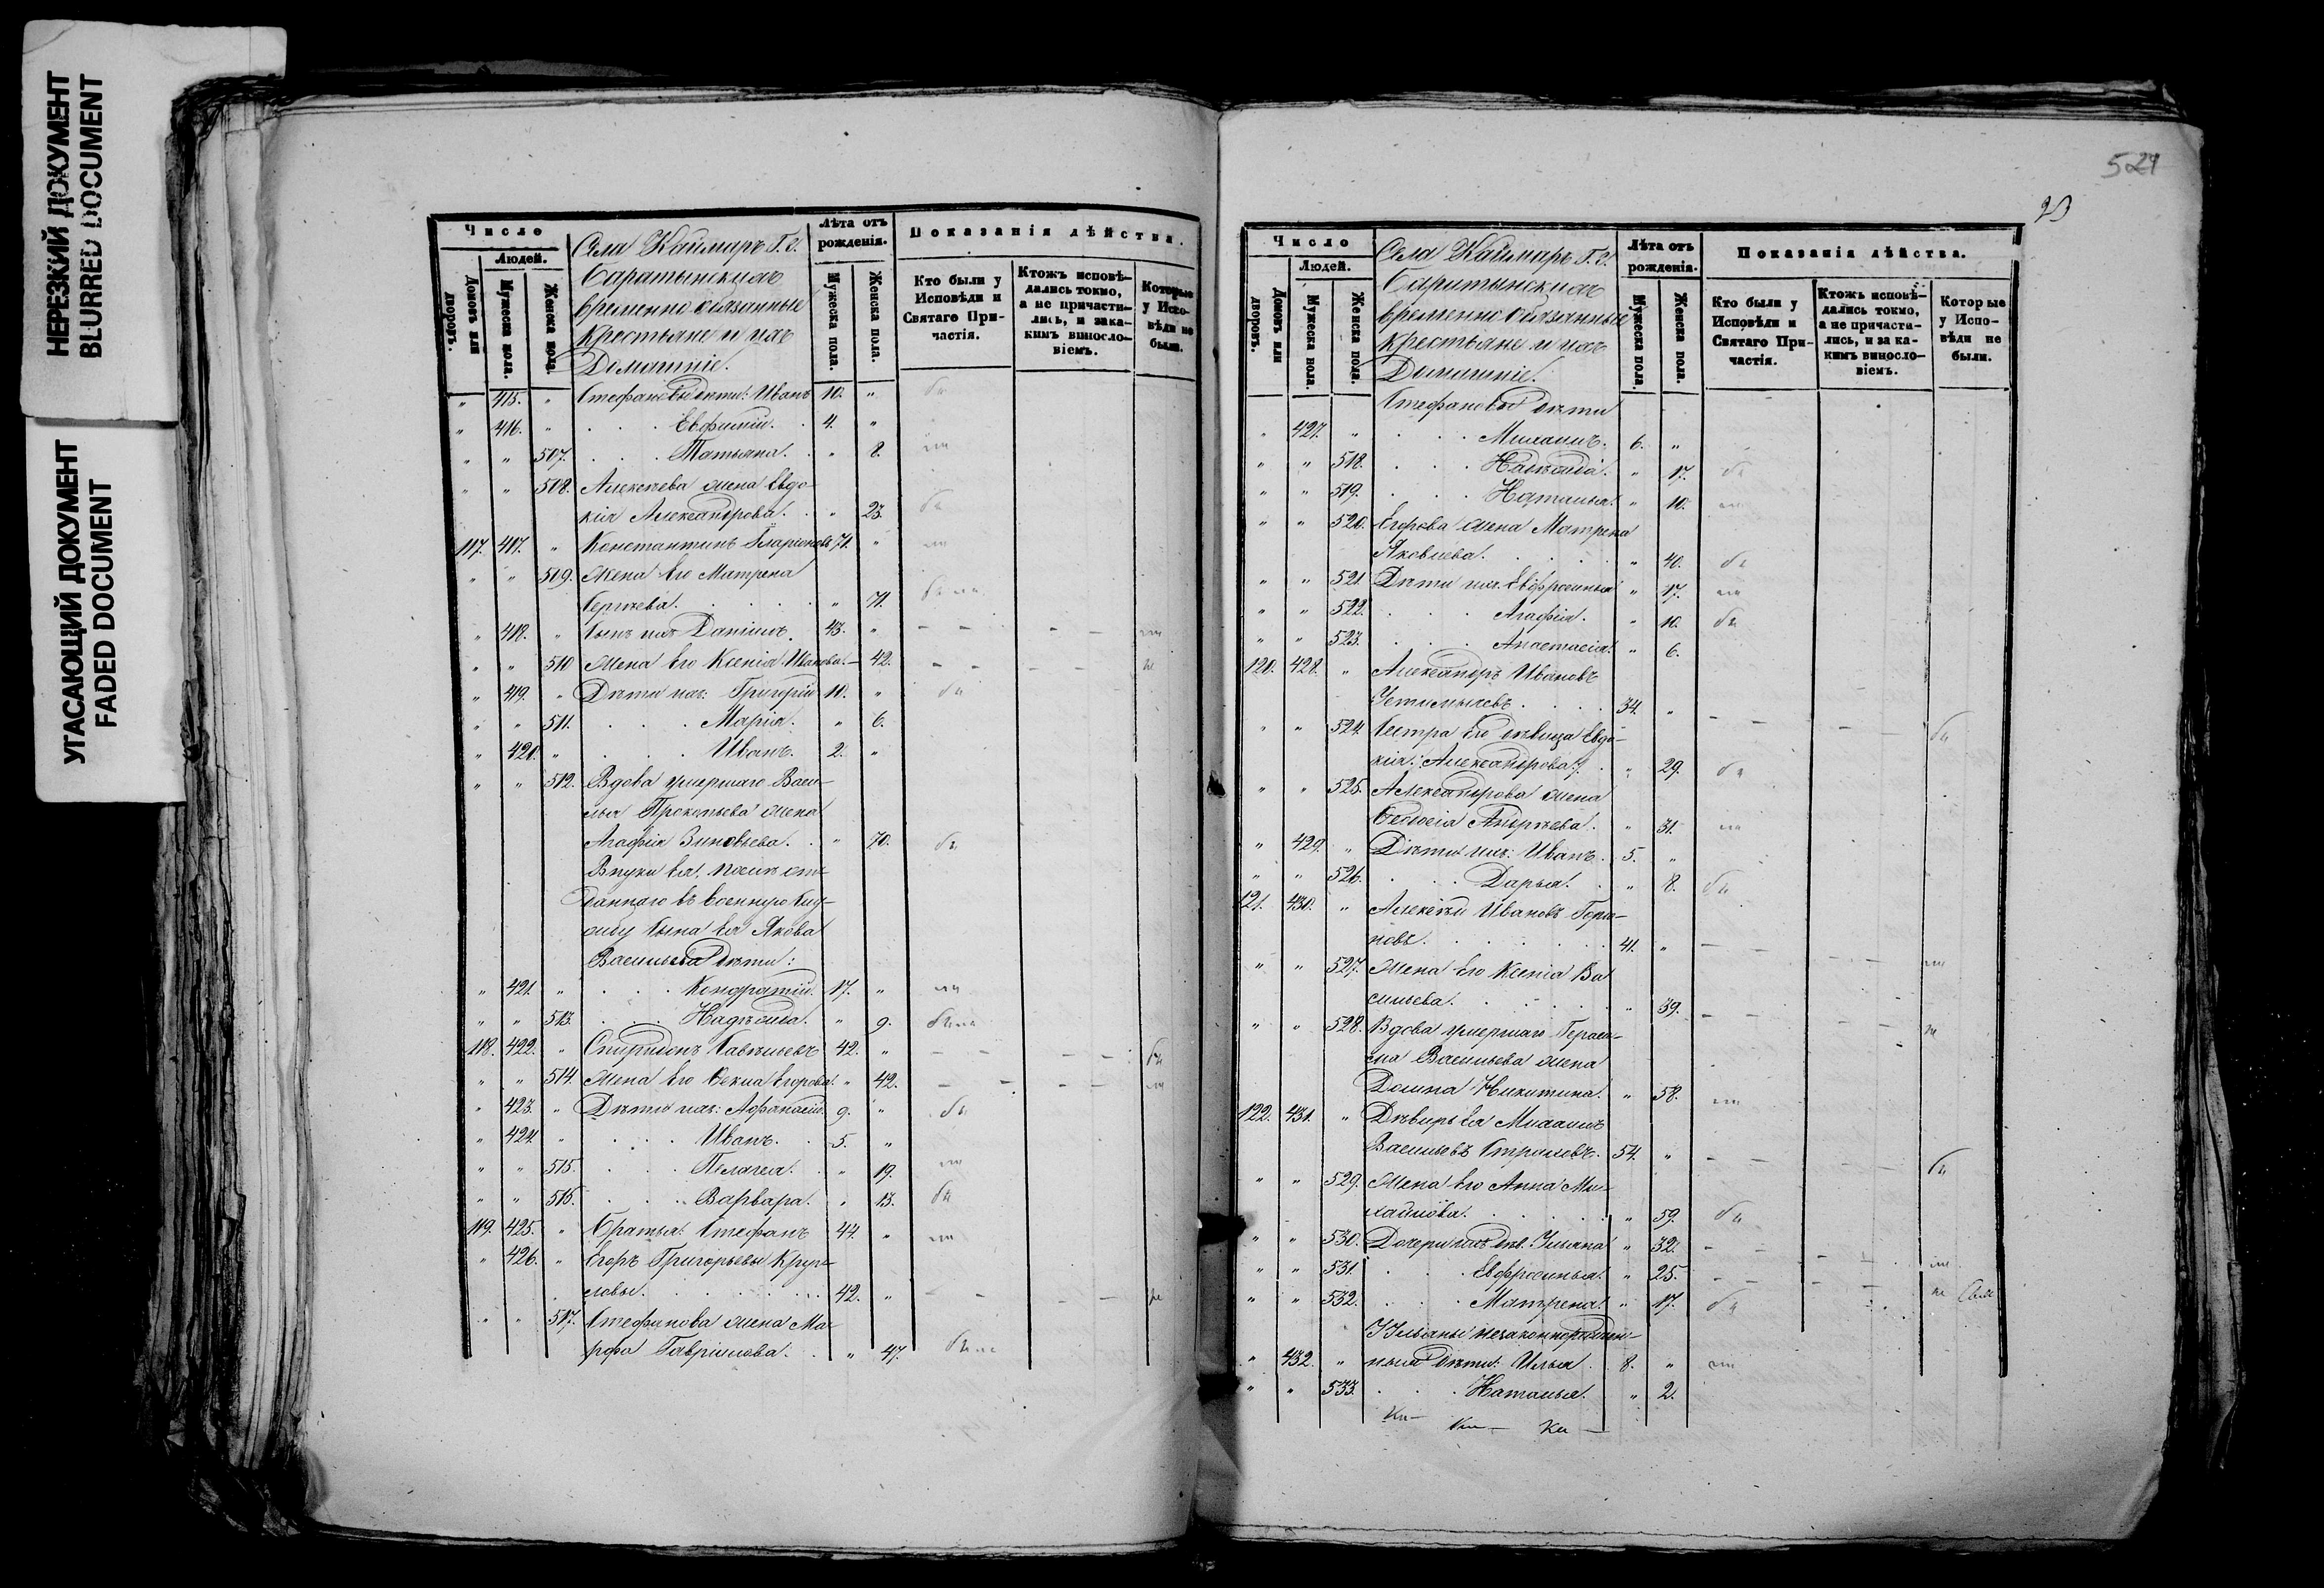 НЕРЕЗКИЙ ДОКУМЕНТ
BLURRED DOCUMENT
УГАСАЮЩИЙ ДОКУМЕНТ
FADED DOCUMENT
Число
Людей.
Домовъ или дворовъ.
Мужеска пола.
Женска пола.
Села Каймаръ Г. С.
временно обязанные
крестьяне и ихъ
Домашніе.
Лѣта отъ рожденія.
Мужеска пола.
Женска пола.
Показанія дѣйства.
Кто были у Исповѣди и Святаго Причастія.
Ктожъ исповѣдались токмо, а не причастились, и закакимъ винословіемъ.
Которые у Исповѣди не были.
" 415. " Стефановы дѣти: Иванъ 10. "
" 416. " Евфимій. 4. "
" " 507. Татьяна. " 8.
" " 508. Алексѣева жена Евдо-
кія Александрова. " 23.
117. 417. " Константинъ Иларіоновъ 71. "
" " 509. Жена его Матрена
Сергѣева. " 71.
" 418. " Сынъ ихъ Даніилъ. 43. "
" " 510 Жена его Ксенія Иванова. 42.
" 419. " Дѣти ихъ: Григорій 10. "
" " 511. Марія. " 6.
" 420. " Иванъ. 2. "
" " 512. Вдова умершаго Васи-
лья Прокопьева жена
Агафія Зиновьева. " 70.
Внуки ея, послѣ от-
даннаго въ военную служ-
бу сына ея Якова
Васильева дѣти:
" 421. " Кондратій. 17. "
" " 513. Надежда. " 9.
118. 422. " Спиридонъ Савельевъ 42. "
" " 514. Жена его Ѳекла Егорова. " 42.
" 423. " Дѣти ихъ: Афанасій. 9. "
" 424. " Иванъ. 5. "
" " 515. Пелагея. " 19.
" " 516. Варвара. " 13.
119. 425. " Братья: Стефанъ 44. "
" 426. " Егоръ Григорьевы Круг-
ловы. 42. "
" " 517. Стефанова жена Ма-
рфа Гавріилова. " 47.
524
Число
Людей.
Домовъ или дворовъ.
Мужеска пола.
Женска пола.
Села Каймаръ Г. С.
временно обязанные
крестьяне и ихъ
Домашніе.
Лѣта отъ рожденія.
Мужеска пола.
Женска пола.
Показанія дѣйства.
Кто были у Исповѣди и Святаго Причастія.
Ктожъ исповѣдались токмо, а не причастились, и за какимъ винословіемъ.
Которые у Исповѣди не были.
Стефановы дѣти
" 427. " Михаилъ. 6. "
" " 518. Надежда. " 17.
" " 519. Наталья. " 10.
" " 520. Егорова жена Матрена
Яковлева. " 40.
" " 521. Дѣти ихъ: Евфросинья " 17.
" " 522. Агафія. " 10.
" " 523. Анастасія. " 6.
120. 428. " Александръ Ивановъ
34. "
" " 524. Сестра его дѣвица Евдо-
кія Александрова. " 29.
" " 525. Александрова жена
Андреева. " 31.
" 429. " Дѣти ихъ: Иванъ. 5. "
" " 526. Дарья. " 8.
121. 430. " Алексѣй Ивановъ Горш-
новъ. 41. "
" " 527. Жена его Ксенія Ва-
сильева. " 39.
" " 528. Вдова умершаго Гераси-
ма Васильева жена
Домна Никитина. " 58.
122. 431. " Дѣверь ея Михаилъ
Васильевъ 54. "
" " 529. Жена его Анна Ми-
хайлова. " 59.
" " 530. Дочери ихъ дѣв. Ульяна " 32.
" " 531. Евфросинья. " 25.
" " 532. Матрена. " 17.
Ульяны незаконнорожден-
" 432. " ныя дѣти: Илья. 8. "
" " 533. Наталья. " 2.